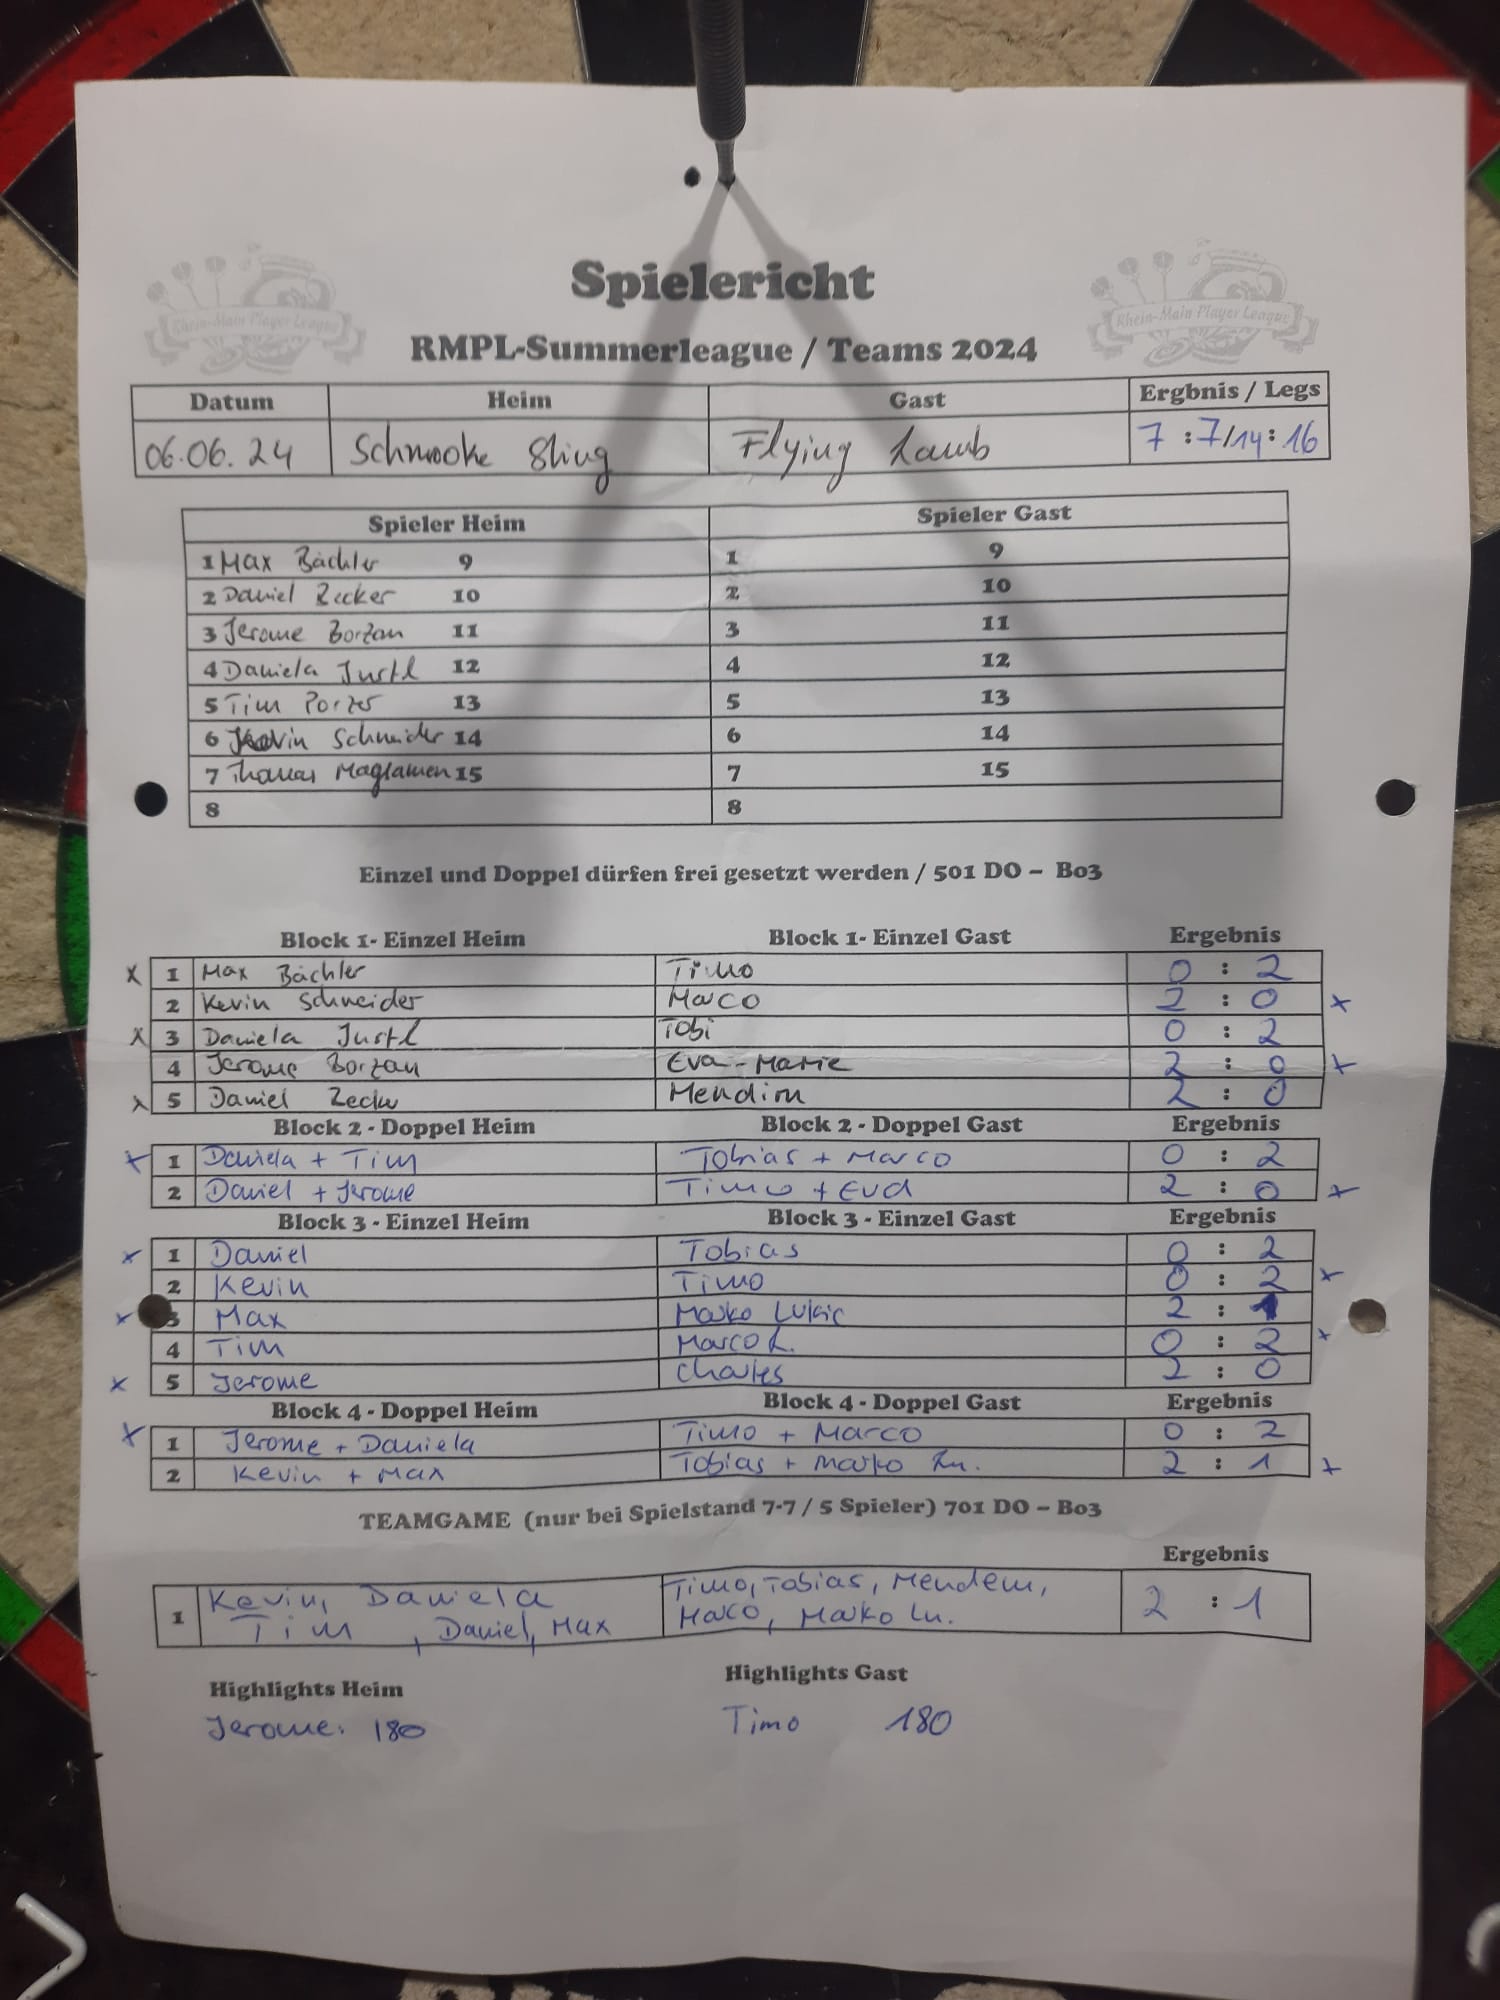 Spielericht
Rhein-Main Player League
Rhein-Main Player League
RMPL-Summerleague / Teams 2024
Datum Heim Gast Ergbnis / Legs
06.06.24 Schnooke Sting Flying Lamb 7 : 7/14 : 16
Spieler Heim Spieler Gast
1 Max Bächler 9 1 9
2 Daniel Zecker 10 2 10
3 Jerome Borzan 11 3 11
4 Daniela Justl 12 4 12
5 Tim Porzer 13 5 13
6 Kevin Schneider 14 6 14
7 15 7 15
8 8
Einzel und Doppel dürfen frei gesetzt werden / 501 DO – Bo3
Block 1- Einzel Heim Block 1- Einzel Gast Ergebnis
x 1 Max Bächler Timo 0 : 2
2 Kevin Schneider Marco 2 : 0 x
x 3 Daniela Justl Tobi 0 : 2
4 Jerome Borzan Eva-Marie 2 : 0 x
x 5 Daniel Zecker Mendim 2 : 0
Block 2 - Doppel Heim Block 2 - Doppel Gast Ergebnis
x 1 Daniela + Tim Tobias + Marco 0 : 2
2 Daniel + Jerome Timo + Eva 2 : 0 x
Block 3 - Einzel Heim Block 3 - Einzel Gast Ergebnis
x 1 Daniel Tobias 0 : 2
2 Kevin Timo 0 : 2 x
x 3 Max Marko Lukic 2 : 1
4 Tim Marco L. 0 : 2 x
x 5 Jerome Charles 2 : 0
Block 4 - Doppel Heim Block 4 - Doppel Gast Ergebnis
x 1 Jerome + Daniela Timo + Marco 0 : 2
2 Kevin + Max Tobias + Marko Lu. 2 : 1 x
TEAMGAME (nur bei Spielstand 7-7 / 5 Spieler) 701 DO – Bo3
Ergebnis
1 Kevin, Daniela Timo, Tobias, Mendem, 2 : 1
Tim , Daniel, Max Marco, Marko Lu.
Highlights Heim Highlights Gast
Jerome: 180 Timo 180